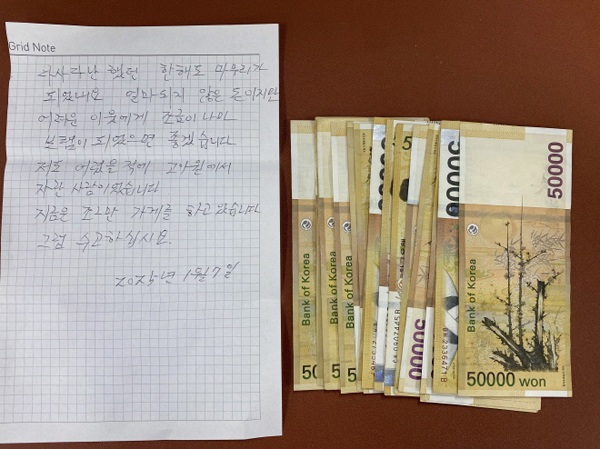 Grid Note
다사다난 했던 한해도 마무리가
되었내요 얼마되지 않은 돈이지만
어려운 이웃에게 조금이나마
보탬이 되었으면 좋겠습니다
저도 어렸을적에 고아원에서
자란 사람이였습니다
지금은 조그만 가게를 하고 있습니다
그럼 수고하십시요.
2025년 1월 7일
Bank of Korea
50
Bank of Korea
5
Bank of Korea
50
5
50000
50000
Bank of Korea
50000
Bank of Korea
50000 won